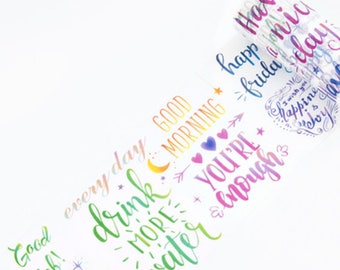 Good
every day
GOOD
MORNING
drink
MORE
water
YOU'RE
enough
happy
friday
Have
a nice
day
I wish you
happiness
& joy